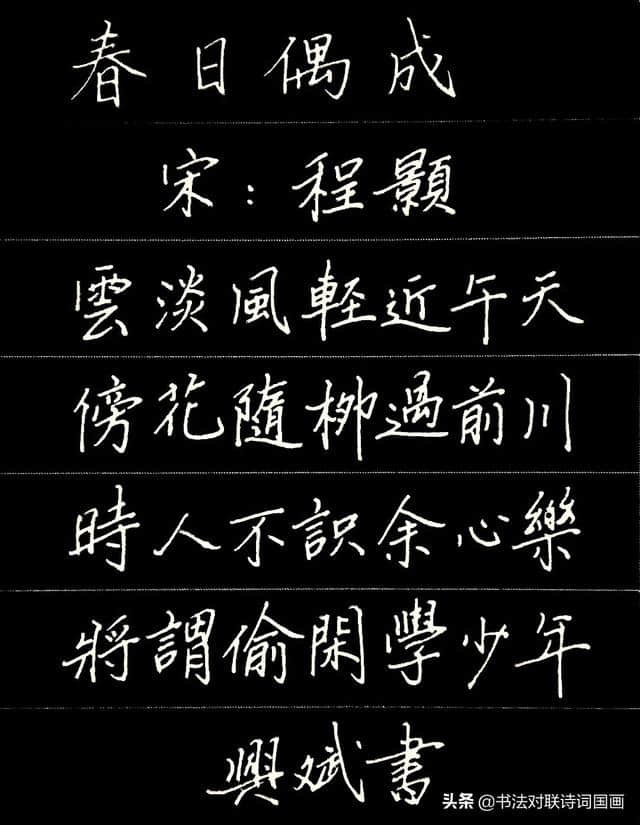 春日偶成
宋:程顥
雲淡風軽近午天
傍花隨柳過前川
時人不識余心樂
將謂偷閑學少年
興斌書
头条 @书法对联诗词国画